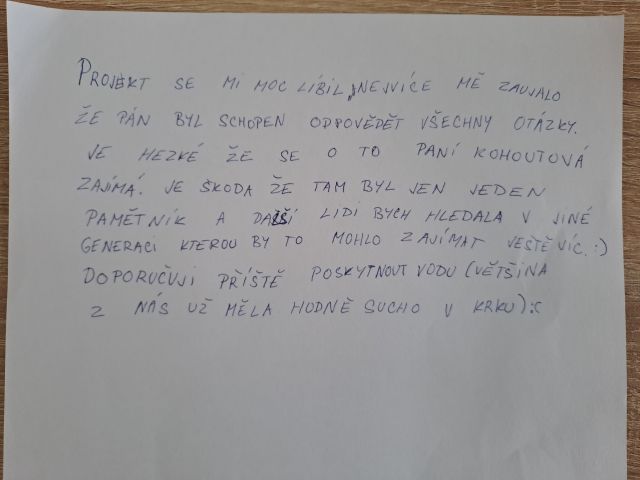 PROJEKT SE MI MOC LÍBIL, NEJVÍCE MĚ ZAUJALO
ŽE PÁN BYL SCHOPEN ODPOVĚDĚT VŠECHNY OTÁZKY.
JE HEZKÉ ŽE SE O TO PANÍ KOHOUTOVÁ
ZAJÍMÁ. JE ŠKODA ŽE TAM BYL JEN JEDEN
PAMĚTNÍK A DALŠÍ LIDI BYCH HLEDALA V JINÉ
GENERACI KTEROU BY TO MOHLO ZAJÍMAT JEŠTĚ VÍC. :)
DOPORUČUJI PŘÍŠTĚ POSKYTNOUT VODU (VĚTŠINA
Z NÁS UŽ MĚLA HODNĚ SUCHO V KRKU) :(